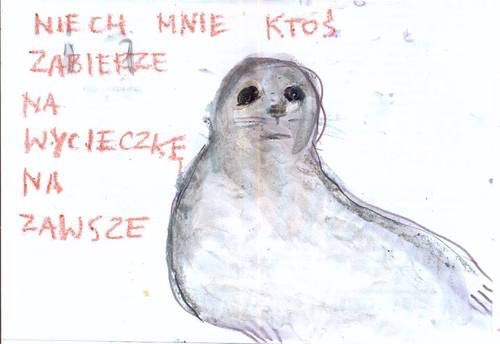 NIECH MNIE KTOŚ
ZABIERZE
NA
WYCIECZKĘ
NA
ZAWSZE